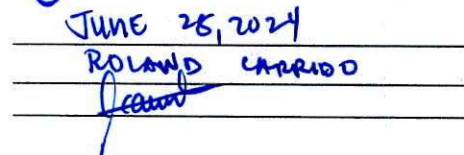 JUNE 28, 2024
ROLAND CARRIDO